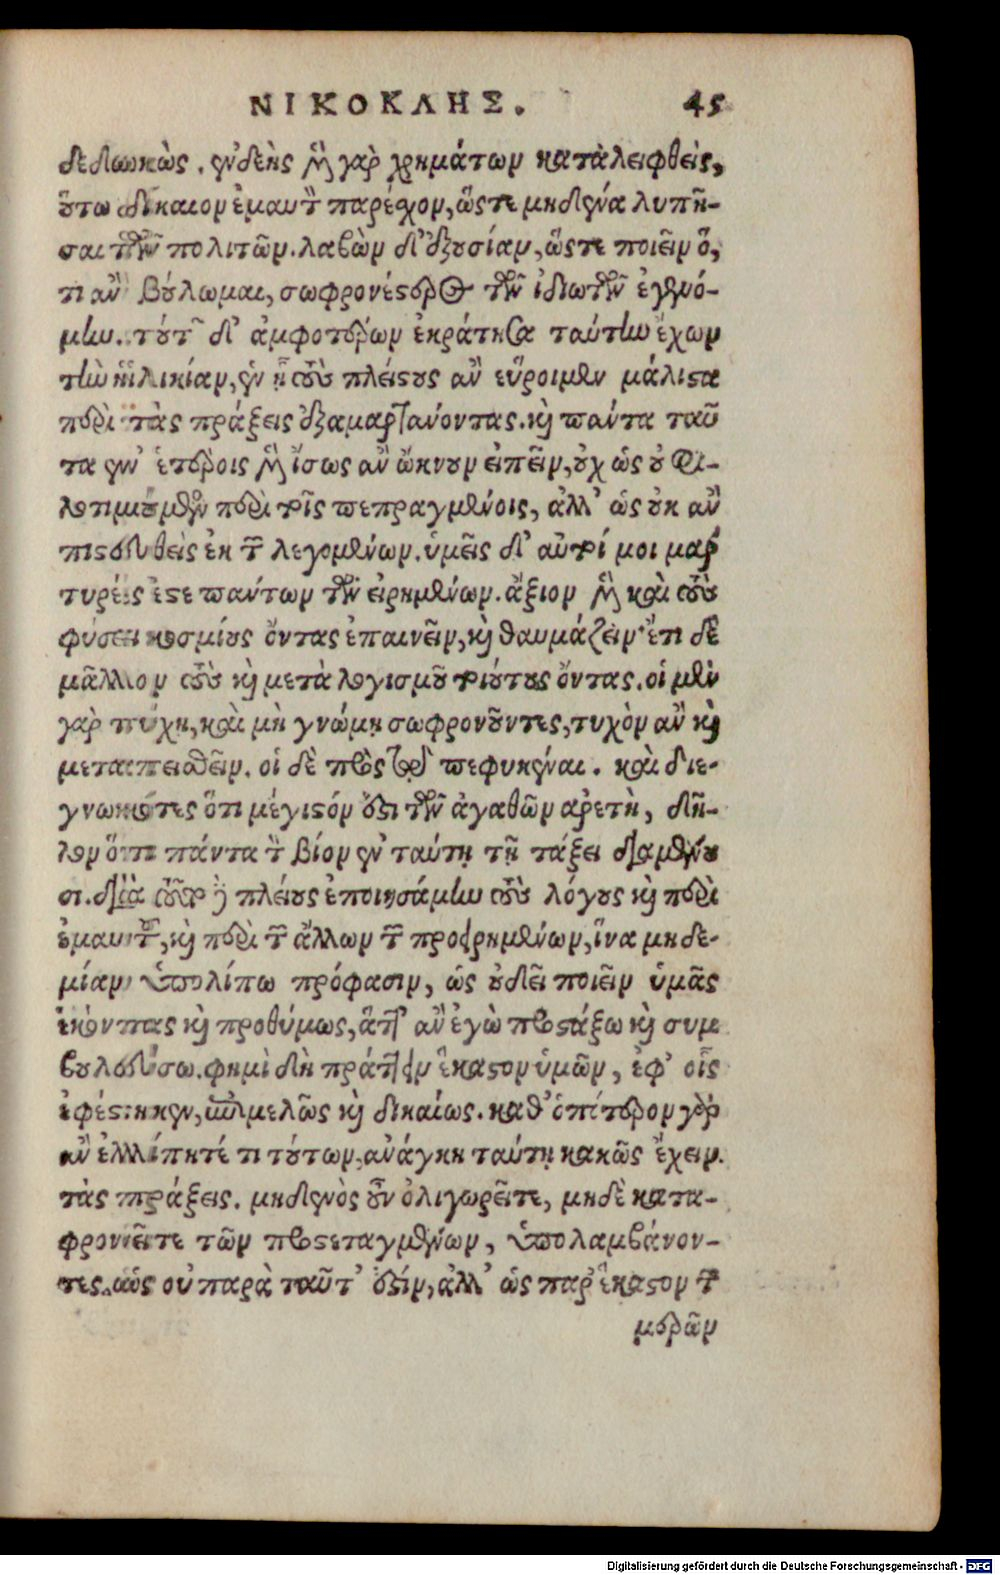 ΝΙΚΟΚΛΗΣ. 45
δεδωκὼς. ἐνδεὴς μὲν γὰρ χρημάτων καταλειφθεὶς,
οὕτω δίκαιον ἐμαυτὸν παρέσχον, ὥςτε μηδένα λυπῆ-
σαι τῶν πολιτῶν. λαβὼν δ' ἐξουσίαν, ὥςτε ποιεῖν ὅ,
τι ἂν βούλωμαι, σωφρονέστερος τῶν ἰδιωτῶν ἐγενό-
μην. τούτων δ' ἀμφοτέρων ἐκράτησα ταύτην ἔχων
τὴν ἡλικίαν, ἐν ᾗ τοὺς πλείστους ἂν εὕροιμεν μάλιστα
περὶ τὰς πράξεις ἐξαμαρτανόντας. καὶ πάντα ταῦ
τα ἐν ἑτέροις μὲν ἴσως ἂν ὤκνουν εἰπεῖν, οὐχ ὡς οὐ φι-
λοτιμούμενος περὶ τοῖς πεπραγμένοις, ἀλλ' ὡς οὐκ ἂν
πιστευθεὶς ἐκ τῶν λεγομένων. ὑμεῖς δ' αὐτοί μοι μαρ
τυρές ἐστε πάντων τῶν εἰρημένων. ἄξιον μὲν καὶ τοὺς
φύσει κοσμίους ὄντας ἐπαινεῖν, καὶ θαυμάζειν· ἔτι δὲ
μᾶλλον τοὺς καὶ μετὰ λογισμοῦ τοιούτους ὄντας. οἱ μὲν
γὰρ τύχῃ, καὶ μὴ γνώμῃ σωφρονοῦντες, τυχὸν ἂν καὶ
μεταπεισθεῖεν. οἱ δὲ πρὸς τῷ πεφυκέναι. καὶ διε-
γνωκότες ὅτι μέγιστόν ἐστι τῶν ἀγαθῶν ἀρετὴ, δῆ-
λον ὅτι πάντα τὸν βίον ἐν ταύτῃ τῇ τάξει διαμένου
σι. διὰ τοῦτο δὲ πλείους ἐποιησάμην τοὺς λόγους καὶ περὶ
ἐμαυτοῦ, καὶ περὶ τῶν ἄλλων τῶν προειρημένων, ἵνα μηδε-
μίαν ὑπολίπω πρόφασιν, ὡς οὐ δεῖ ποιεῖν ὑμᾶς
ἑκόντας καὶ προθύμως, ἅττ' ἂν ἐγὼ προστάξω καὶ συμ
βουλεύσω. φημὶ δὴ πράττειν ἕκαστον ὑμῶν, ἐφ' οἷς
ἐφέστηκεν, ἐπιμελῶς καὶ δικαίως. καθ' ὁπότερον γὰρ
ἂν ἐλλίπητέ τι τούτων, ἀνάγκη ταύτῃ κακῶς ἔχειν.
τὰς πράξεις. μηδενὸς οὖν ὀλιγωρεῖτε, μηδὲ κατα-
φρονεῖτε τῶν προστεταγμένων, ὑπολαμβάνον-
τες. ὡς οὐ παρὰ ταῦτ' ἐστίν, ἀλλ' ὡς παρ' ἕκαστον τῶν
μερῶν
Digitalisierung gefördert durch die Deutsche Forschungsgemeinschaft - DFG